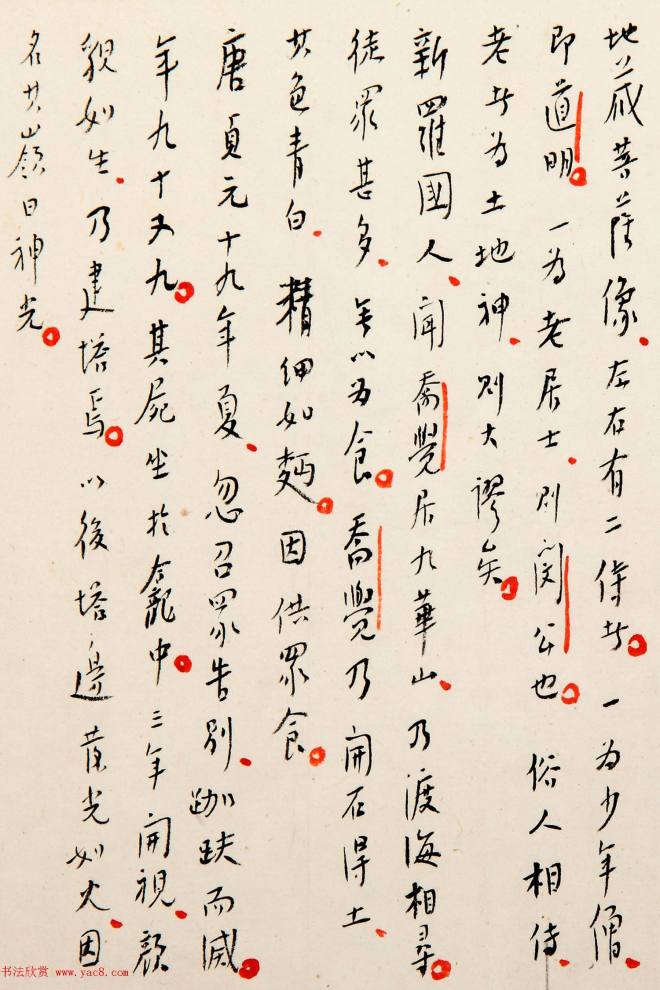 地藏菩薩像、左右有二侍者。一為少年僧、
即道明。一為老居士、則閔公也。俗人相侍、
老者為土地神、則大謬矣。
新羅國人、聞喬覺居九華山、乃渡海相尋。
徒眾甚多、無以為食。喬覺乃開石得土、
其色青白、精細如麵。因供眾食。
唐貞元十九年夏、忽召眾告別、跏趺而滅。
年九十又九。其屍坐於龕中。三年開視、顏
貌如生、乃建塔焉。以後塔邊 光如火、因
名其嶺曰神光。
书法欣赏 www.yac8.com